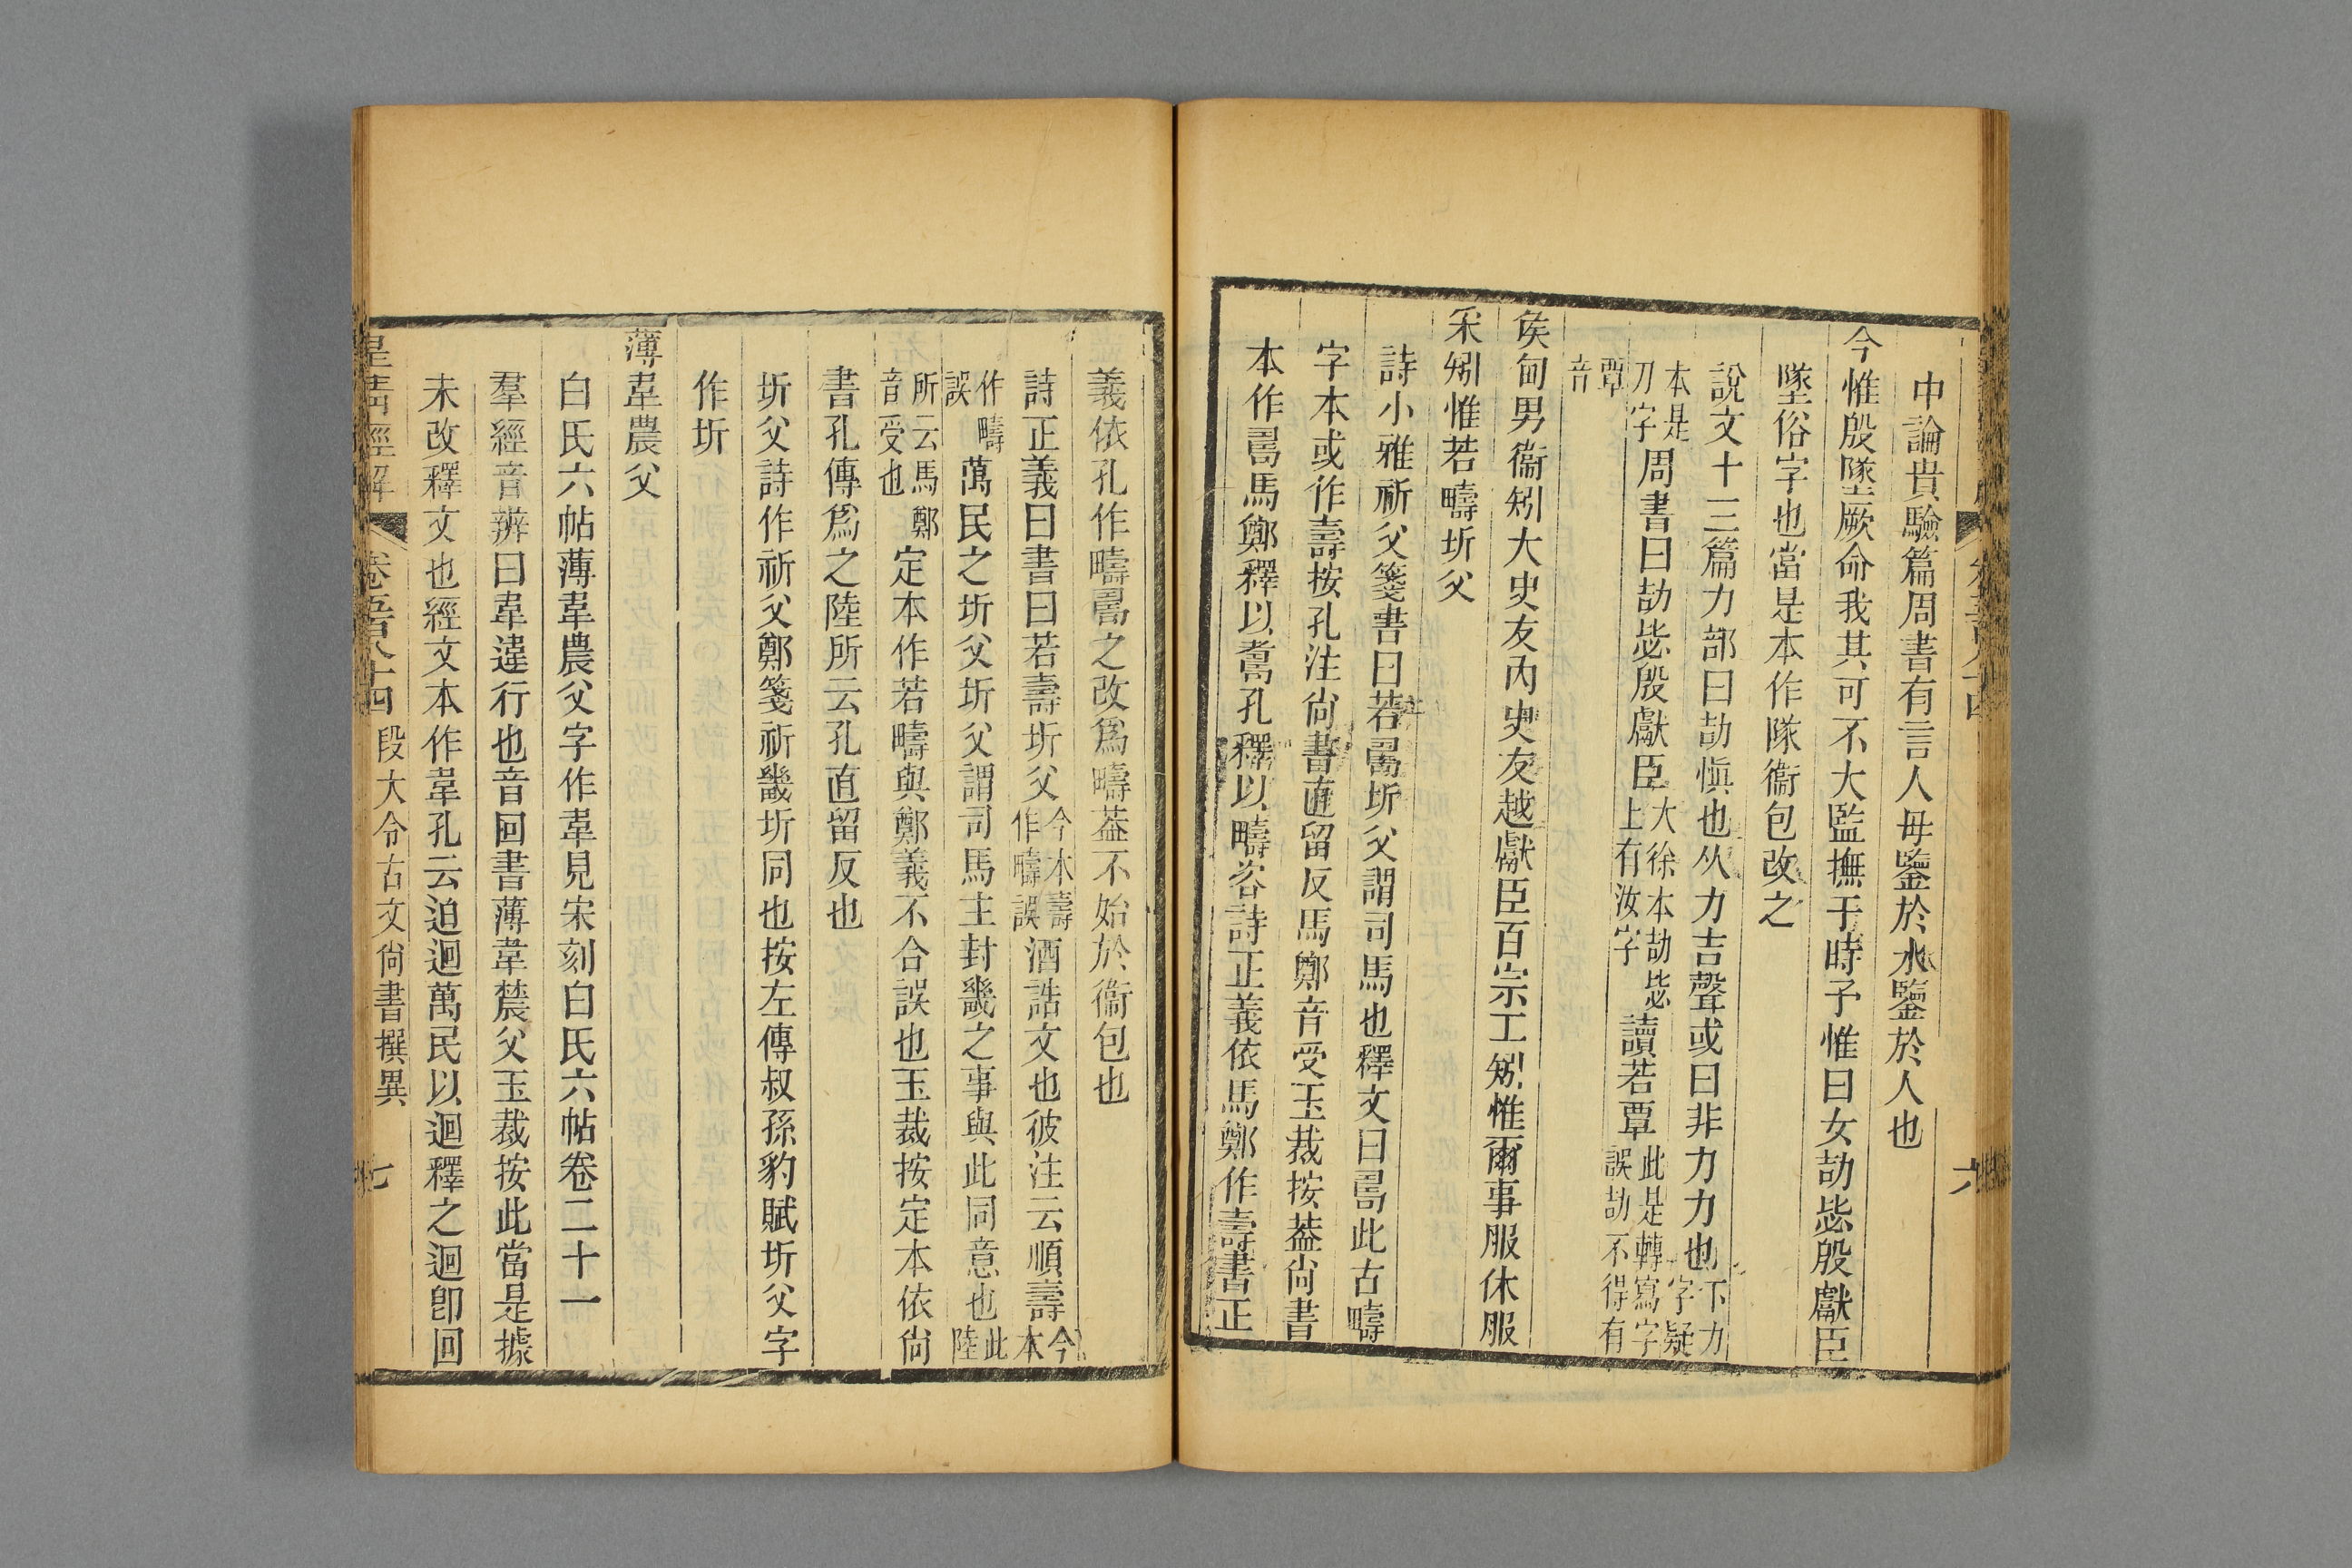 中論貴驗篇周書有言人毋鑒於水鑒於人也
今惟殷墜厥命我其可不大監撫于時予惟曰女劼毖殷獻臣
墜俗字也當是本作隊衞包改之
說文十三篇力部曰劼愼也从力吉聲或曰非力力也下力字疑
本是刀字周書曰劼毖殷獻臣大徐本劼毖上有汝字讀若覃此是轉寫字誤劼不得有
覃音
矦甸男衞矧大史友內史友越獻臣百宗工矧惟爾事服休服
采矧惟若疇圻父
詩小雅祈父箋書曰若圻父謂司馬也釋文曰此古疇
字本或作壽按孔注尙書直留反馬鄭音受玉裁按葢尙書
本作馬鄭釋以孔釋以疇咨詩正義依馬鄭作壽書正
義依孔作疇之改爲疇葢不始於衞包也
詩正義曰書曰若壽圻父今本壽作疇誤酒誥文也彼注云順壽今本
作疇誤萬民之圻父圻父謂司馬主封畿之事與此同意也此陸
所云馬鄭音受也定本作若疇與鄭義不合誤也玉裁按定本依尙
書孔傳爲之陸所云孔直留反也
圻父詩作祈父鄭箋祈畿圻同也按左傳叔孫豹賦圻父字
作圻
薄韋農父
白氏六帖薄韋農父字作韋見宋刻白氏六帖卷二十一
羣經音辨曰韋違行也音回書薄韋䢉父玉裁按此當是據
未改釋文也經文本作韋孔云迫迴萬民以迴釋之迴卽回
皇淸經解 卷五百八十四 段大令古文尙書撰異 七